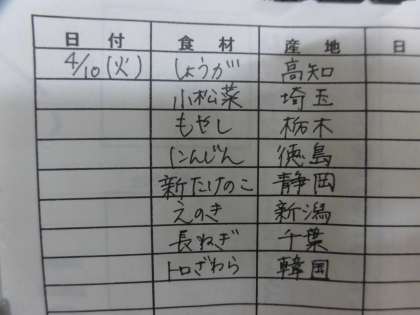 日 付 食 材 産 地 日
4/10(火) しょうが 高知
小松菜 埼玉
もやし 栃木
にんじん 徳島
新たけのこ 静岡
えのき 新潟
長ねぎ 千葉
トロざわら 韓国